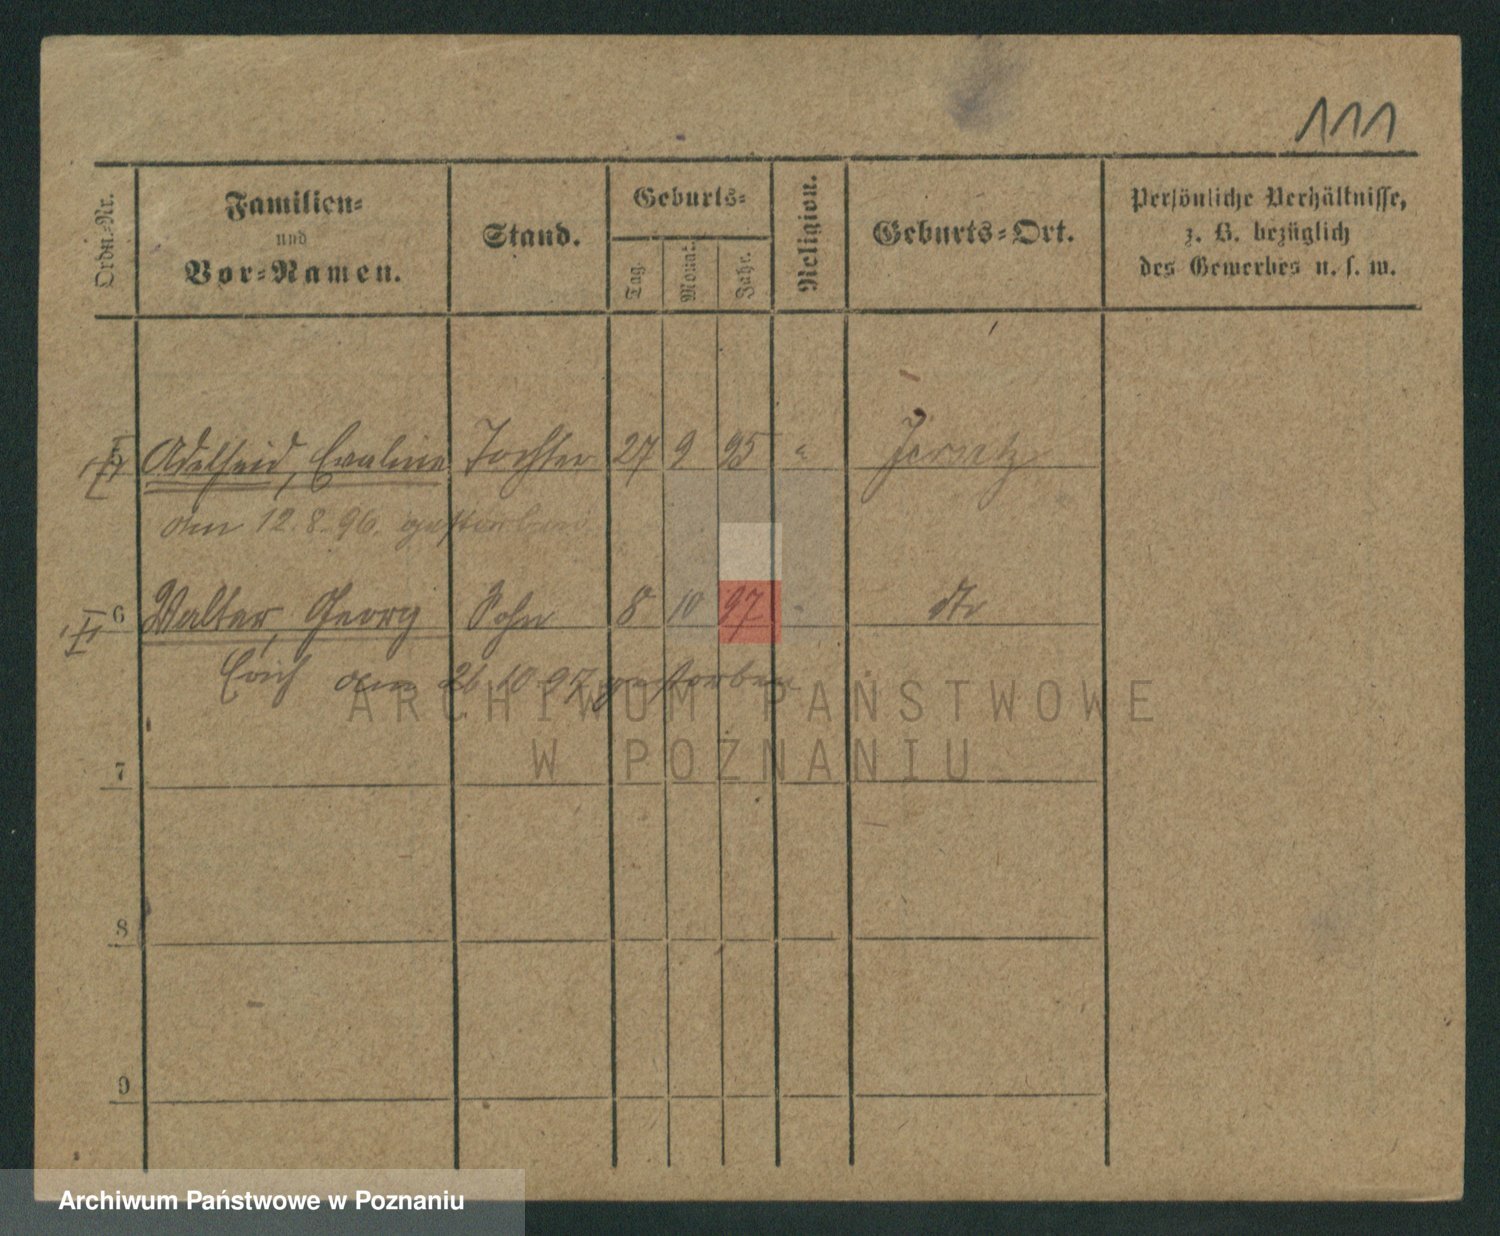 111
Ordn.-Nr. Familien- und Vor-Namen. Stand. Geburts- Tag. Monat. Jahr. Religion. Geburts-Ort. Persönliche Verhältnisse, z. B. bezüglich des Gewerbes u. s. w.
5 Adelheid, Evaline Tochter 27 9 95 " Jersitz
den 12.8.96. gestorben
6 Walter, Georg Sohn 8 10 97 " dto
Erich den 26 10 97 gestorben
7
8
9
ARCHIWUM PAŃSTWOWE
W POZNANIU
Archiwum Państwowe w Poznaniu